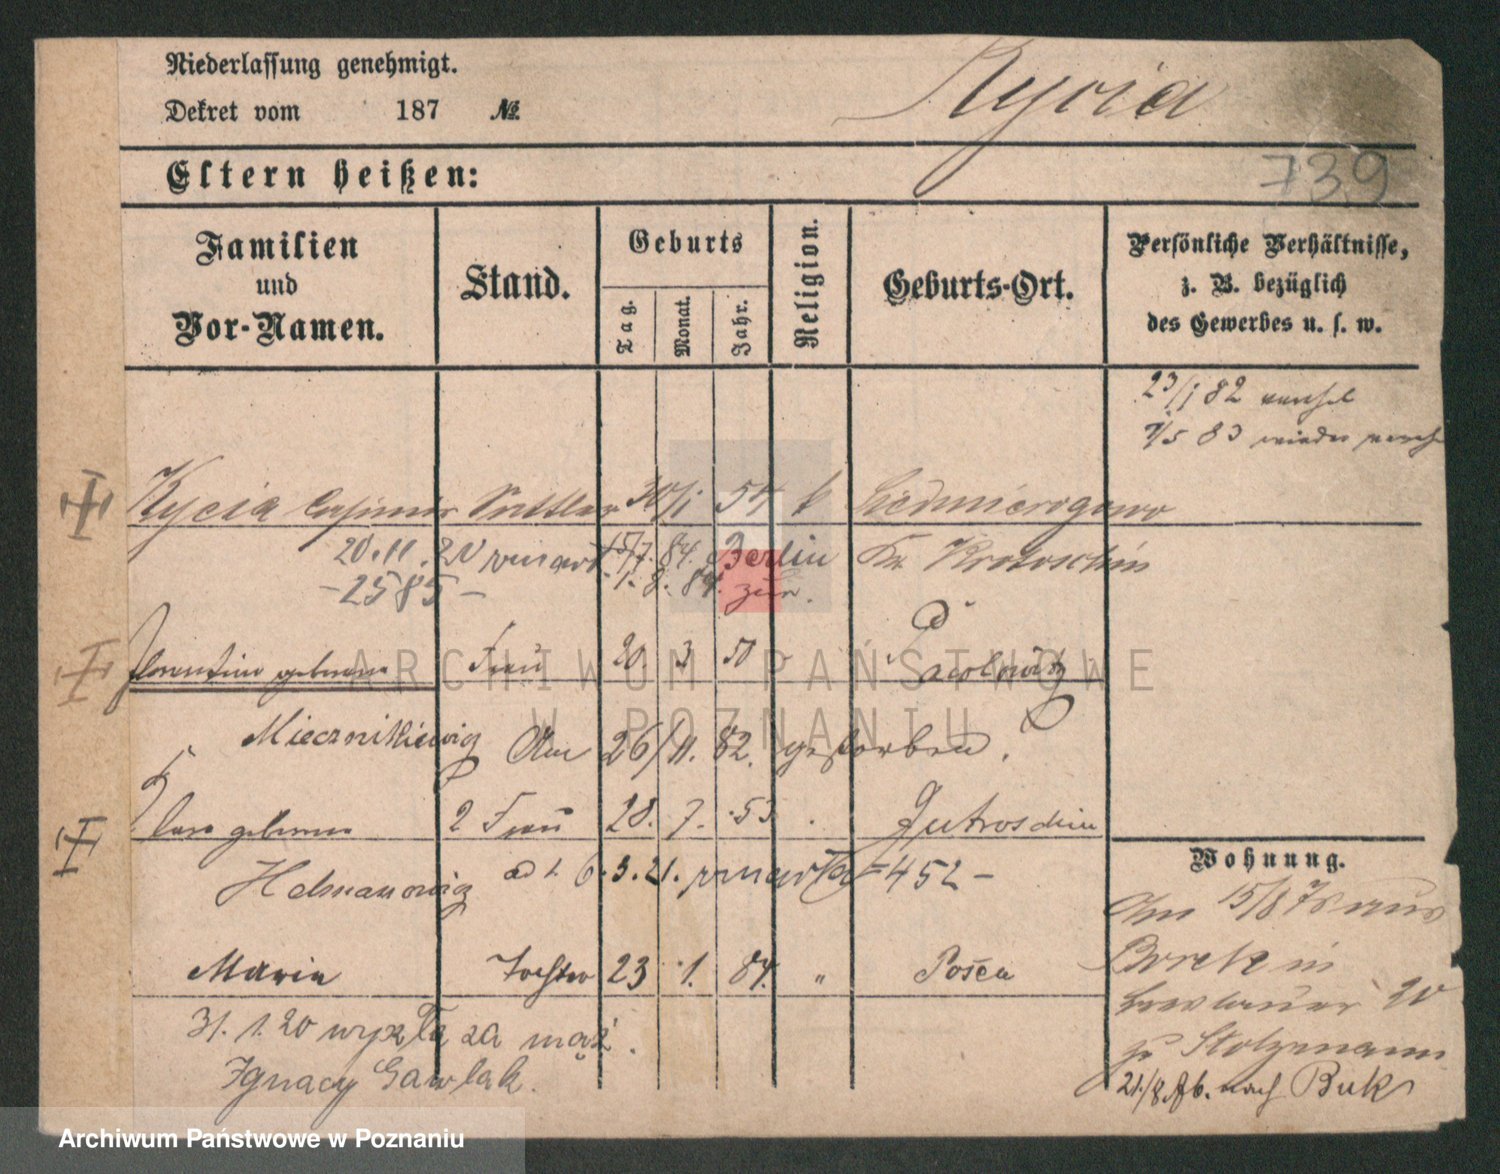 Niederlassung genehmigt.
Dekret vom 187 №
Kycia
739
Eltern heißen:
Familien und Vor-Namen.
Stand.
Geburts
Tag.
Monat.
Jahr.
Religion.
Geburts-Ort.
Persönliche Verhältnisse,
z. B. bezüglich
des Gewerbes u. s. w.
23/1 82
7/5 83 wieder
Kycia Casimir Sattler 30/1 54 k
20.11.20 umarł 15/7. 84. Berlin Kr. Krotoschin
-2585- 1. 8. 84. zur.
Florentine geborene Frau 20. 3 50 Jacobowitz
Miecznikiewicz Am 26/11. 82. gestorben.
Clara geborene 2 Frau 28. 7. 53 . Jutroschin
6.3.21. umarła -452-
Maria Tochter 23 1. 84. " Posen
31. 1. 20 wyszła za mąż.
Ignacy Gawlak.
Wohnung.
Am 15/8 78 aus
Borek in
Breslauer 20
Stolzmann
21/8 nach Buk
ARCHIWUM PAŃSTWOWE
W POZNANIU
Archiwum Państwowe w Poznaniu